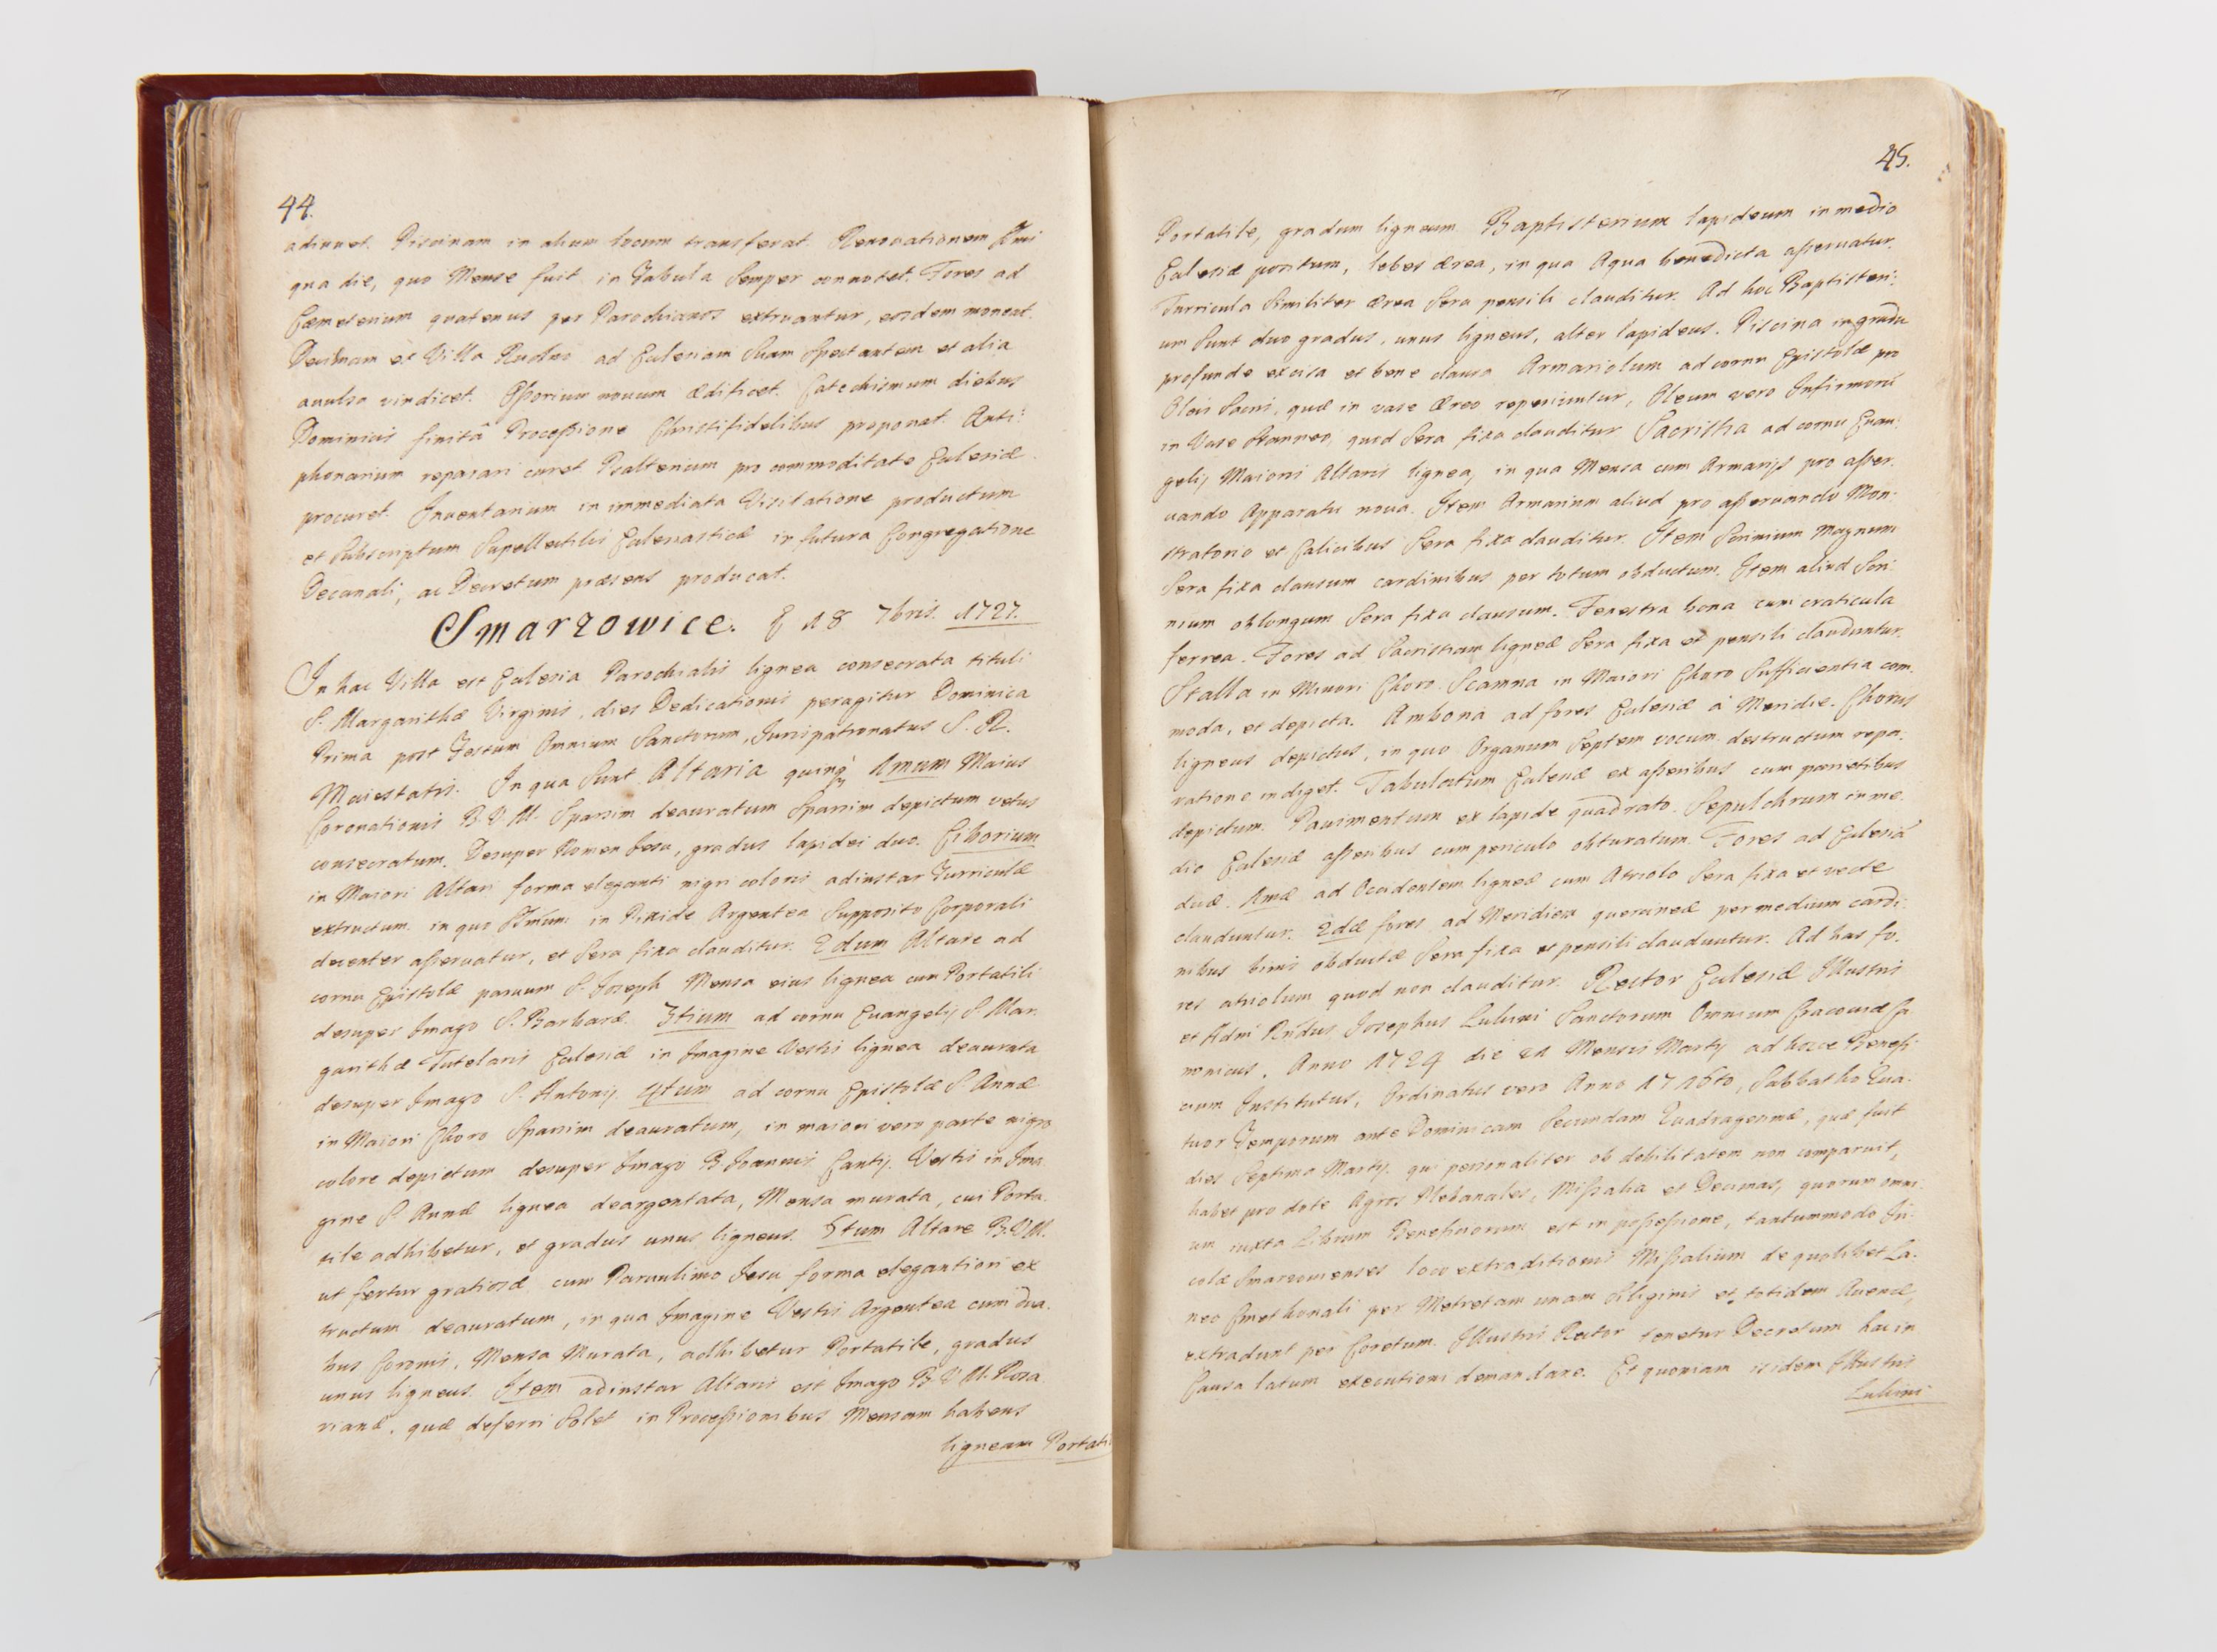 44.
adinuet. Piscinam in alium locum transferat. Renouationem SSmi
qua die, quo Mense fuit in Tabula Semper connotet. Fores ad
Cæmeterium quatenus per Parochianos extruantur, eosdem moneat.
Decimam ex Villa Rudno ad Eccleriam Suam Spectantem et alia
auulsa vindicet. Ossorium nouum ædificet. Catechismum diebus
Dominicis finitâ Processione Christifidelibus proponat. Anti:
phonarium reparari curet Psalterium pro commoditate Ecclesiæ
procuret. Inuentarium in immediata Visitatione productum
et Subscriptum Supellectilis Ecclesiasticæ in futura Congregatione
Decanali, ac Decretum præsens producat.
Smarzowice. 18 7bris. 1727.
In hac Villa est Ecclesia Parochialis lignea consecrata tituli
S. Margarithæ Virginis, dies Dedicationis peragitur Dominica
Prima post Festum Omnium Sanctorum, Jurispatronatus S. R.
Maiestatis. In qua Sunt Altaria quinq; 1mum Maius
Coronationis B. V. M. Sparsim deauratum Sparsim depictum vetus
consecratum. Desuper Nomen Jesu, gradus lapidei duo. Ciborium
in Maiori Altari forma eleganti nigri coloris adinstar Turriculæ
extructum in quo SSmum in Pixide Argentea Supposito Corporali
decenter asseruatur, et Sera fixa clauditur. 2dum Altare ad
cornu Epistolæ paruum S. Joseph Mensa eius lignea cum Portatili
desuper Imago S. Barbaræ. 3tium ad cornu Euangelij S. Mar:
garithæ Tutelaris Ecclesiæ in Imagine Vestis lignea deaurata
desuper Imago S. Antonij. 4tum ad cornu Epistolæ S. Annæ
in Maiori Choro Sparsim deauratum, in maiori vero parte nigro
colore depictum desuper Imago B. Joannis Cantij. Vestis in Ima:
gine S. Annæ lignea deargentata, Mensa murata, cui Porta:
tile adhibetur, et gradus unus ligneus. 5tum Altare B.V.M.
ut fertur gratiosæ cum Paruulimo Jesu forma elegantiori ex
tructum deauratum, in qua Imagine Vestis Argentea cum dua:
bus Coronis, Mensa Murata, adhibetur Portatile, gradus
unus ligneus. Item adinstar Altaris est Imago B. V. M. Rosa:
rianæ, quæ deferri Solet in Processionibus Mensam habens
ligneam Portati
45.
Portatile, gradum ligneum. Baptisterium lapideum in medio
Ecclesiæ positum, lebes ærea, in qua Aqua benedicta asseruatur.
Turricula Similiter ærea Sera pensili clauditur. Ad hoc Baptisteri:
um Sunt duo gradus, unus ligneus, alter lapideus. Piscina in gradu
profunde excisa et bene clausa Armariolum ad cornu Epistolæ pro
Oleis Sacris, quæ in vase æreo reperiuntur, Oleum vero Infirmorũ
in Vase stanneo, quod Sera fixa clauditur Sacristia ad cornu Euan:
gelij Maioris Altaris lignea, in qua Mensa cum Armarijs pro asser:
uando Apparatu noua. Item Armarium aliud pro asseruando Mon:
stratorio et Calicibus Sera fixa clauditur. Item Scrinium Magnum
Sera fixa clausum cardinibus per totum obductum. Item aliud Scri:
nium oblongum Sera fixa clausum. Fenestra bona cum craticula
ferrea. Fores ad Sacristiam ligneæ Sera fixa et pensili clauduntur.
Stalla in Minori Choro. Scamna in Maiori Choro Sufficientia com:
moda, et depicta. Ambona ad fores Ecclesiæ à Meridie. Chorus
ligneus depictus, in quo Organum Septem vocum destructum repa:
ratione indiget. Tabulatum Ecclesiæ ex asseribus cum parietibus
depictum. Pauimentum ex lapide quadrato. Sepulchrum in me:
dio Ecclesiæ asseribus cum periculo obturatum. Fores ad Ecclesiã
duæ. 1mæ ad Occidentem ligneæ cum Atriolo Sera fixa et vecte
clauduntur. 2dæ fores ad Meridiem quercineæ per medium cardi:
nibus binis obductæ Sera fixa et pensili clauduntur. Ad has fo:
res atriolum quod non clauditur. Rector Ecclesiæ Illustris
et Adm̃ Rñdus Josephus Lubini Sanctorum Omnium Cracouiæ Ca:
nonicus. Anno 1724 die 21 Mensis Martij ad hocce Benefi:
cium Institutus, Ordinatus vero Anno 1716to, Sabbatho Qua:
tuor Temporum ante Dominicam Secundam Quadragesimæ, quæ fuit
dies Septimo Martij. qui personaliter ob debilitatem non comparuit,
habet pro dote Agros Plebanales, Missalia et Decimas, quorum omni:
um iuxta Librum Beneficiorum est in possessione, tantummodo In:
colæ Smarzouienses loco extraditionis Missalium de quolibet La:
neo Cmethonali per Metretam unam Siliginis et totidem Auenæ,
extradunt per Coretum. Illustris Rector tenetur Decretum hac in
Causa latum executioni demandare. Et quoniam isidem Illustris
Lubini